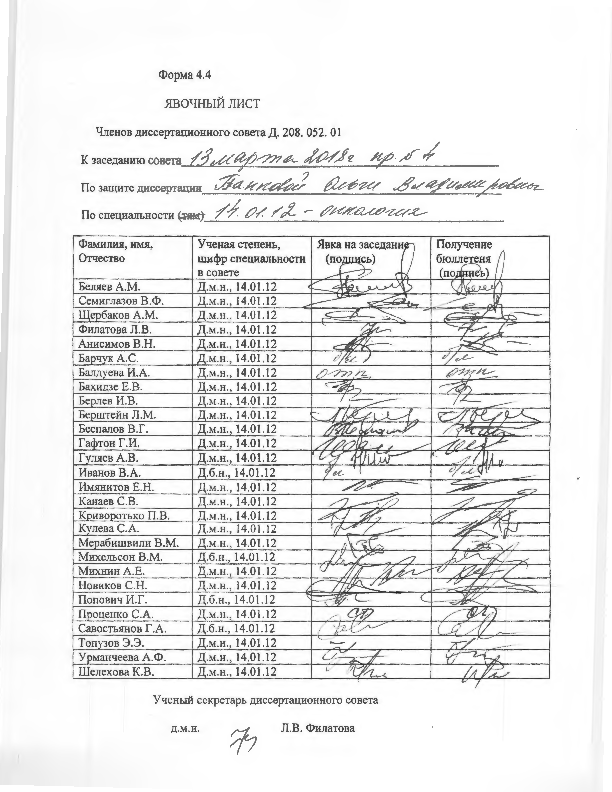 Форма 4.4
ЯВОЧНЫЙ ЛИСТ
Членов диссертационного совета Д. 208. 052. 01
К заседанию совета 13 марта 2018г пр. № 4
По защите диссертации Панковой Ольги Владимировны
По специальности (дим) 14.01.12 – онкология
Фамилия, имя, Отчество | Ученая степень, шифр специальности в совете | Явка на заседание (подпись) | Получение бюллетеня (подпись)
Беляев А.М. Д.м.н., 14.01.12
Семиглазов В.Ф. Д.м.н., 14.01.12
Щербаков А.М. Д.м.н., 14.01.12
Филатова Л.В. Д.м.н., 14.01.12
Анисимов В.Н. Д.м.н., 14.01.12
Барчук А.С. Д.м.н., 14.01.12
Балдуева И.А. Д.м.н., 14.01.12 отп отп
Бахидзе Е.В. Д.м.н., 14.01.12
Берлев И.В. Д.м.н., 14.01.12
Берштейн Л.М. Д.м.н., 14.01.12
Беспалов В.Г. Д.м.н., 14.01.12
Гафтон Г.И. Д.м.н., 14.01.12
Гуляев А.В. Д.м.н., 14.01.12
Иванов В.А. Д.б.н., 14.01.12
Имянитов Е.Н. Д.м.н., 14.01.12
Канаев С.В. Д.м.н., 14.01.12
Криворотько П.В. Д.м.н., 14.01.12
Кулева С.А. Д.м.н., 14.01.12
Мерабишвили В.М. Д.м.н., 14.01.12
Михельсон В.М. Д.б.н., 14.01.12
Михнин А.Е. Д.м.н., 14.01.12
Новиков С.Н. Д.м.н., 14.01.12
Попович И.Г. Д.б.н., 14.01.12
Проценко С.А. Д.м.н., 14.01.12
Савостьянов Г.А. Д.б.н., 14.01.12
Топузов Э.Э. Д.м.н., 14.01.12
Урманчеева А.Ф. Д.м.н., 14.01.12
Шелехова К.В. Д.м.н., 14.01.12
Ученый секретарь диссертационного совета
д.м.н. Л.В. Филатова